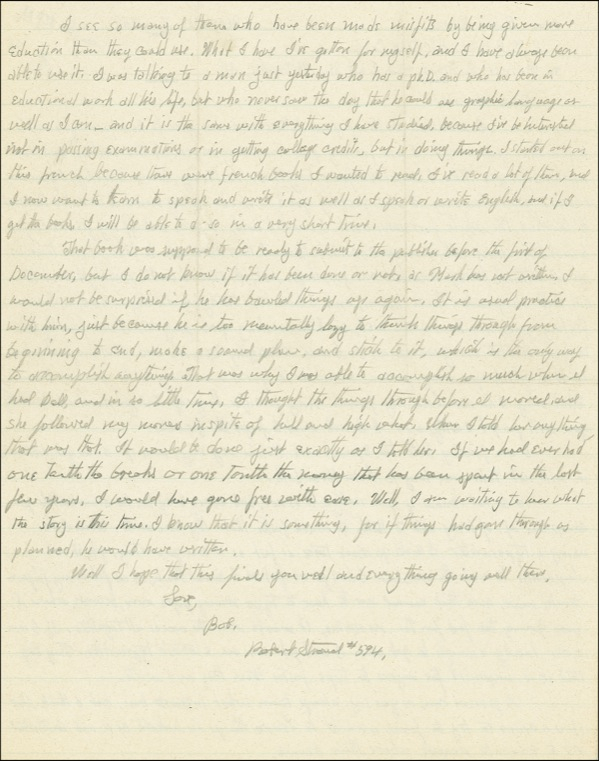 I see so many of them who have been made misfits by being given more
eduction than they could use. What I have I've gotten for myself, and I have always been
able to use it. I was talking to a man just yesterday who has a ph.D. and who has been in
eductional work all his life, but who never saw the day that he could use graphic language as
well as I can_ and it is the same with everything I have studied, because I've be interested
not in passing examinations or in getting college credits, but in doing things. I started out on
this french because there were french books I wanted to read, I've read a lot of them, and
I now want to learn to speak and write it as well as I speak or write English, and if I
get the books I will be able to do so in a very short time.
That book was supposed to be ready to submit to the publisher before the first of
December, but I do not know if it has been done or not, as Mark has not written. I
would not be surprised if he has bawled things up again. It is usual practice
with him, just because he is too mentally lazy to think things through from
beginning to end, make a sound plan, and stick to it, which is the only way
to accomplish anything. That was why I was able to accomplish so much when I
had Dell, and in so little time, I thought the things through before I moved, and
she followed my moves inspite of hell and high water. When I told her anything
that was that. It would be done just exactly as I told her. If we had ever had
one tenth the breaks or one tenth the money that has been spent in the last
few years, I would have gone free with ease. Well, I am waiting to hear what
the story is this time. I know that it is something, for if things had gone through as
planned, he would have written.
Well I hope that this finds you well and everything going well there.
Love,
Bob.
Robert Stroud #594,